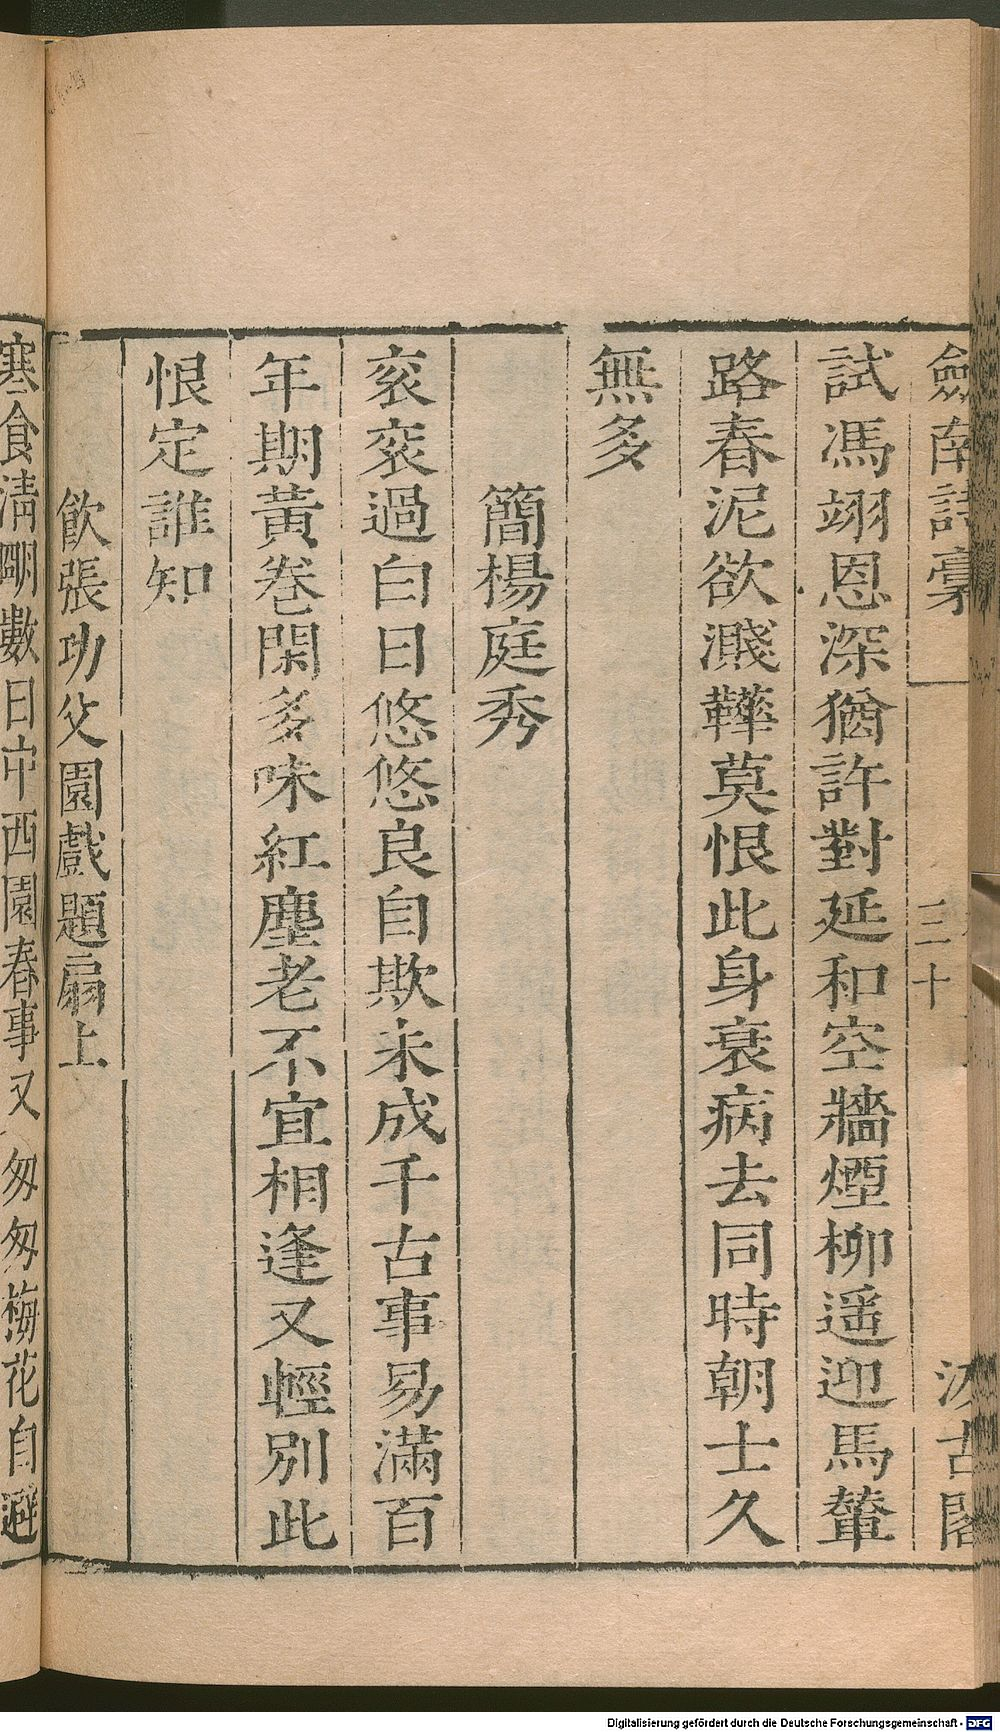 劍南詩稾
三十
汲古閣
試馮翊恩深猶許對延和空牆煙柳遥迎馬輦
路春泥欲濺鞾莫恨此身衰病去同時朝士久
無多
簡楊庭秀
衮衮過白日悠悠良自欺未成千古事易滿百
年期黃卷閑多味紅塵老不宜相逢又輕別此
恨定誰知
飲張功父園戲題扇上
寒食清明數日中西園春事又匆匆梅花自避
Digitalisierung gefördert durch die Deutsche Forschungsgemeinschaft - DFG